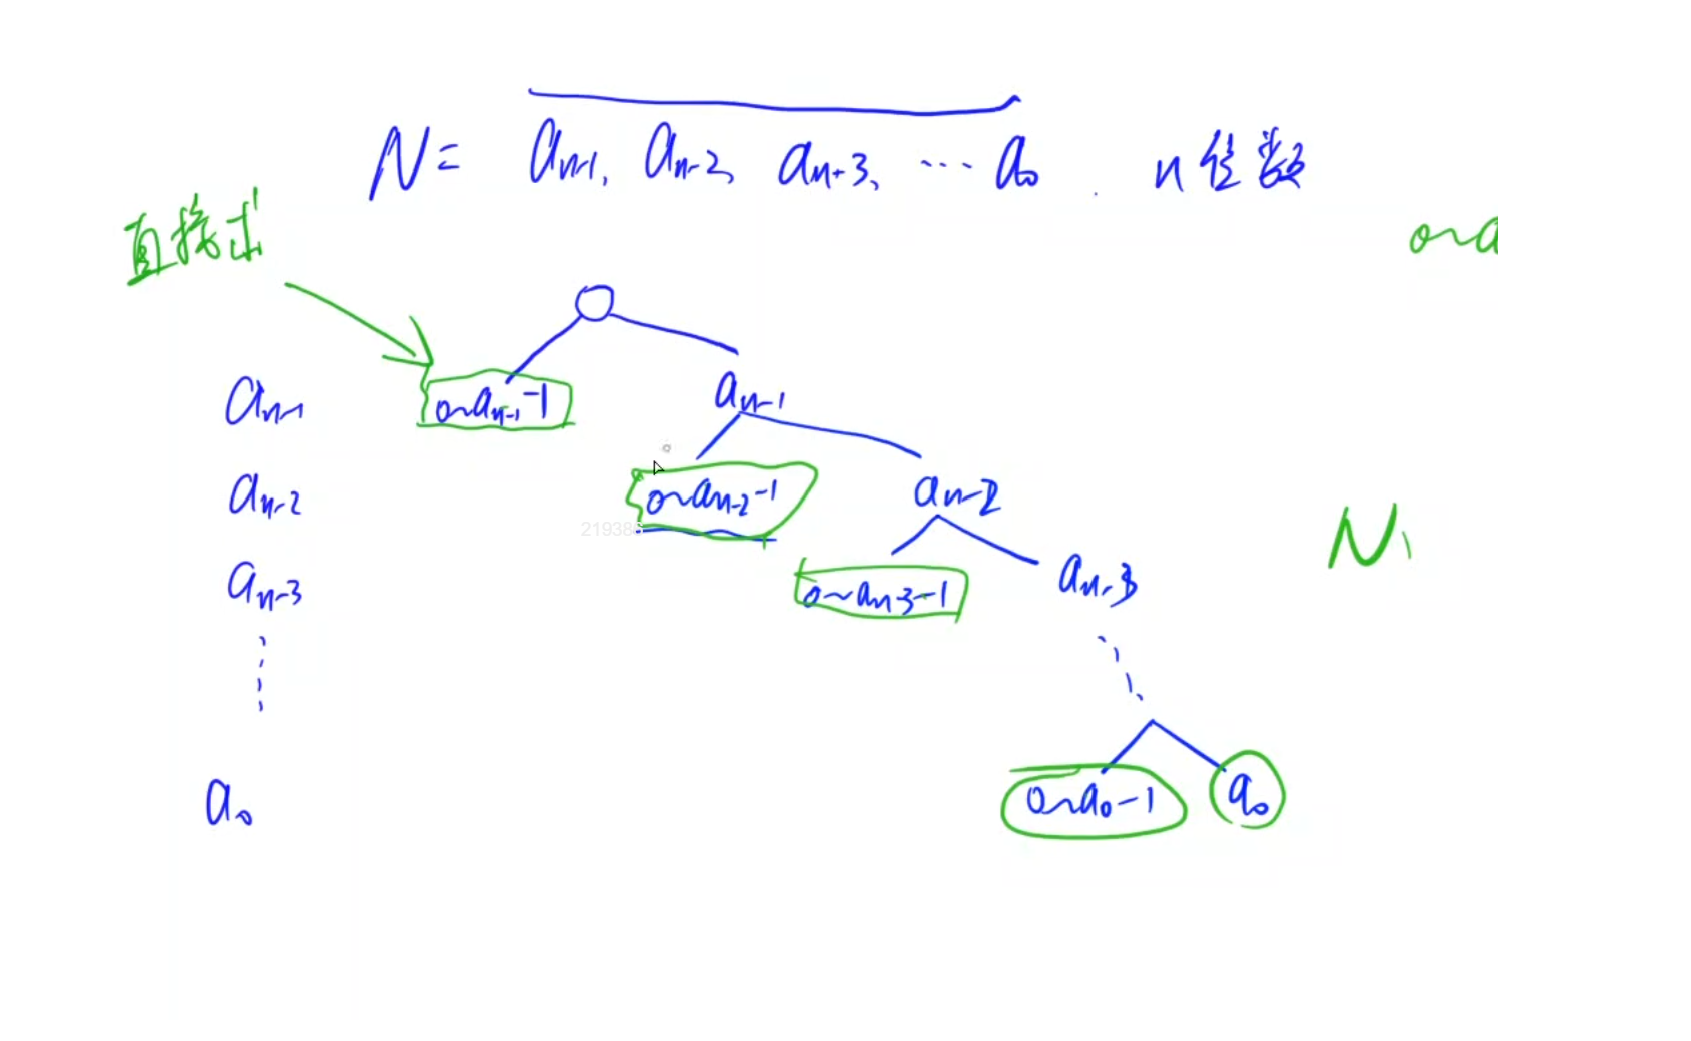 N = aₙ₋₁, aₙ₋₂, aₙ₋₃, … a₀ . n位数
直接求
0~a
aₙ₋₁ 0~aₙ₋₁-1 aₙ₋₁
aₙ₋₂ 0~aₙ₋₂-1 aₙ₋₂
219386
aₙ₋₃ 0~aₙ₋₃-1 aₙ₋₃
N
a₀ 0~a₀-1 a₀